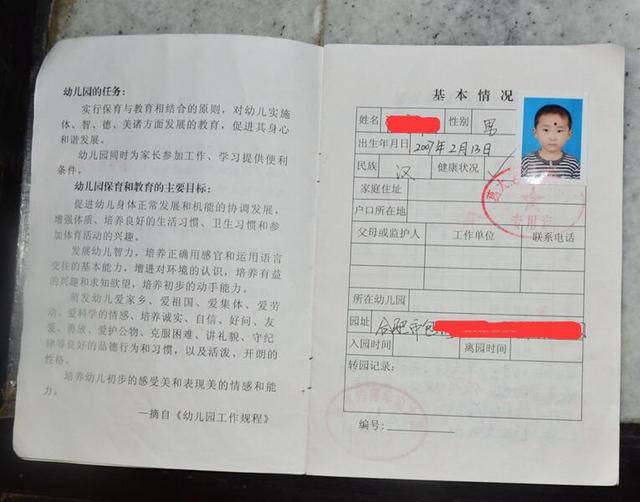 幼儿园的任务：
实行保育与教育相结合的原则，对幼儿实施
体、智、德、美诸方面发展的教育，促进其身心
和谐发展。
幼儿园同时为家长参加工作、学习提供便利
条件。
幼儿园保育和教育的主要目标：
促进幼儿身体正常发育和机能的协调发展，
增强体质、培养良好的生活习惯、卫生习惯和参
加体育活动的兴趣。
发展幼儿智力，培养正确用感官和运用语言
交往的基本能力。增进对环境的认识，培养有益
的兴趣和求知欲望，培养初步的动手能力。
萌发幼儿爱家乡、爱祖国、爱集体、爱劳
动、爱科学的情感，培养诚实、自信、好问、友
爱、勇敢、爱护公物、克服困难、讲礼貌、守纪
律等良好的品德行为和习惯，以及活泼、开朗的
性格。
培养幼儿初步的感受美和表现美的情感和能
力。
—摘自《幼儿园工作规程》
基本情况
姓名 性别 男
出生年月日 2007年2月13日
民族 汉 健康状况
家庭住址
户口所在地
父母或监护人 工作单位 联系电话
所在幼儿园
园址 合肥市包
入园时间 离园时间
转园记录：
编号：